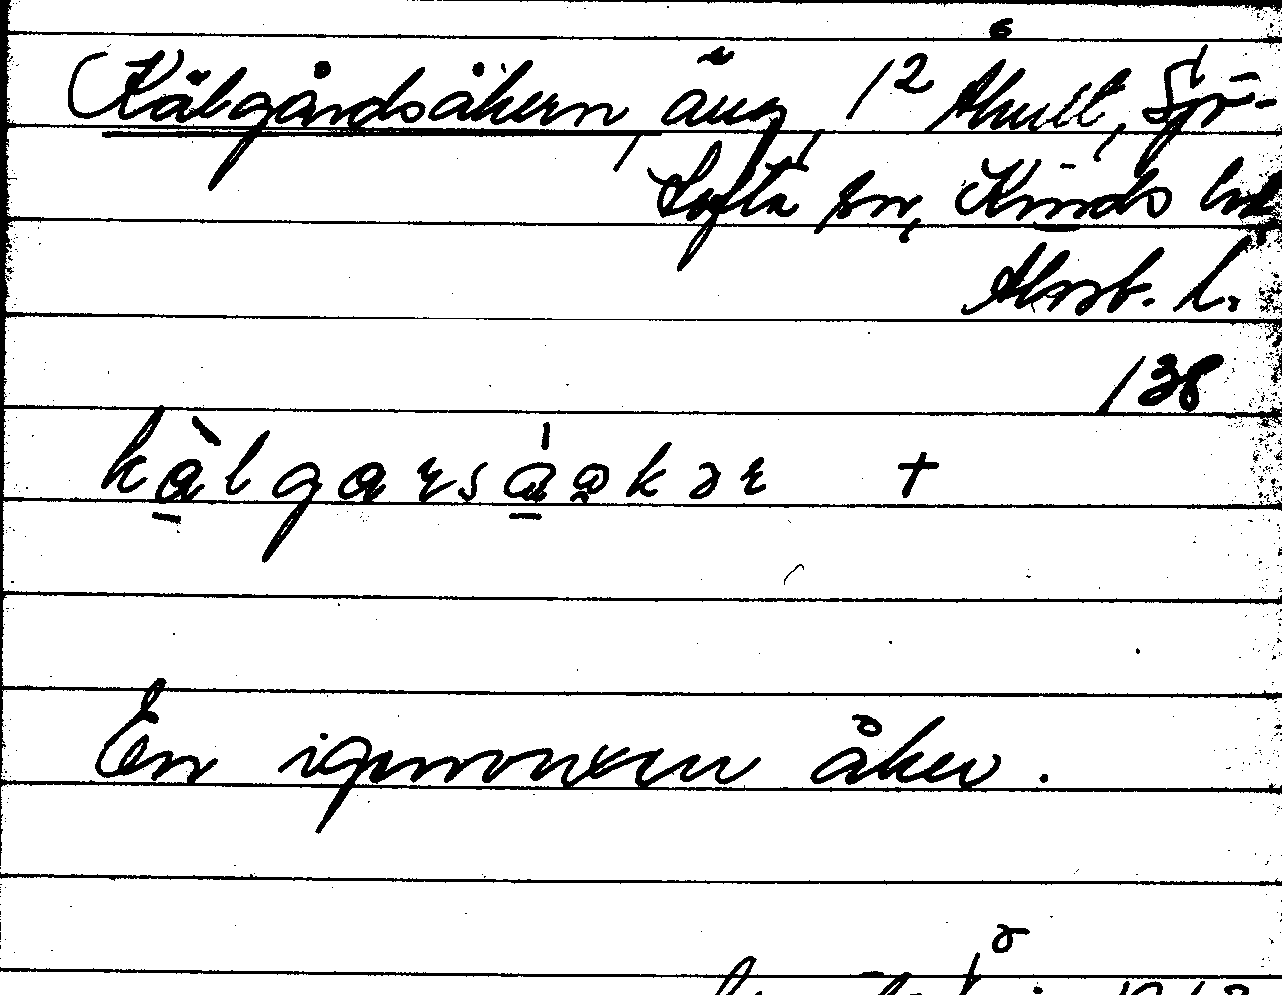 (Kålgårdsåkern, äng, 1² Åhult, Sjö-
tofta sn, Kinds hd
Älvsb. l.
138
kàlgarsáakər +
En igenvuxen åker.